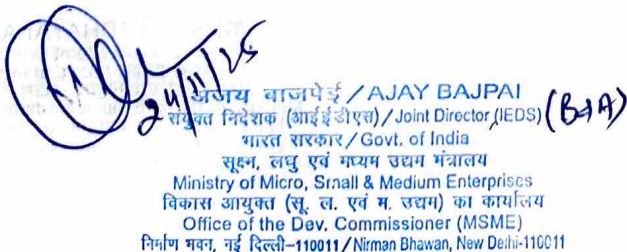 24/11/25
अजय बाजपेई / AJAY BAJPAI
संयुक्त निदेशक (आईईडीएस) / Joint Director (IEDS) (B&A)
भारत सरकार / Govt. of India
सूक्ष्म, लघु एवं मध्यम उद्यम मंत्रालय
Ministry of Micro, Small & Medium Enterprises
विकास आयुक्त (सू. ल. एवं म. उद्यम) का कार्यालय
Office of the Dev. Commissioner (MSME)
निर्माण भवन, नई दिल्ली-110011 / Nirman Bhawan, New Delhi-110011